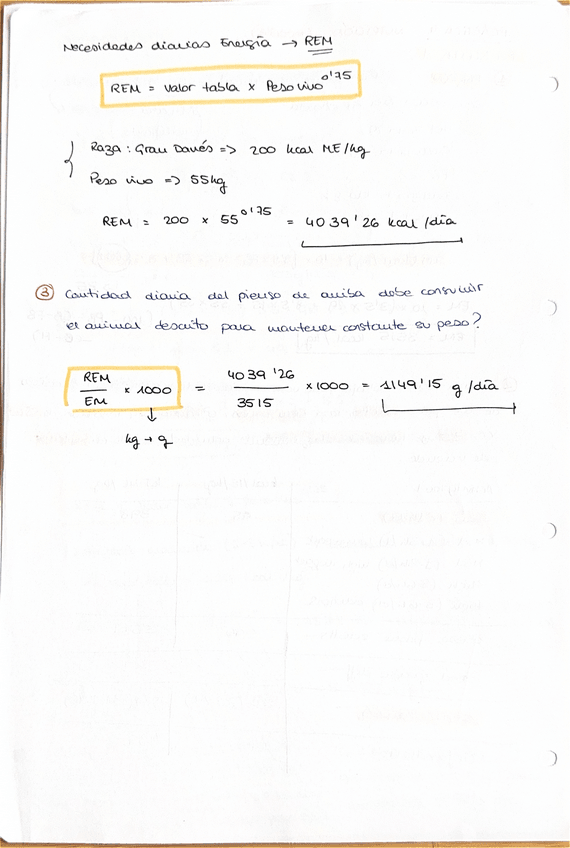 Necesidades diarias Energía → REM
REM = Valor tabla × Peso vivo^0'75
Raza: Gran Danés => 200 kcal ME/kg
Peso vivo => 55kg
REM = 200 × 55^0'75 = 4039'26 kcal /día
③ Cantidad diaria del pienso de arriba debe consumir
el animal descrito para mantener constante su peso?
REM/EM × 1000 = 4039'26/3515 × 1000 = 1149'15 g /día
kg → g